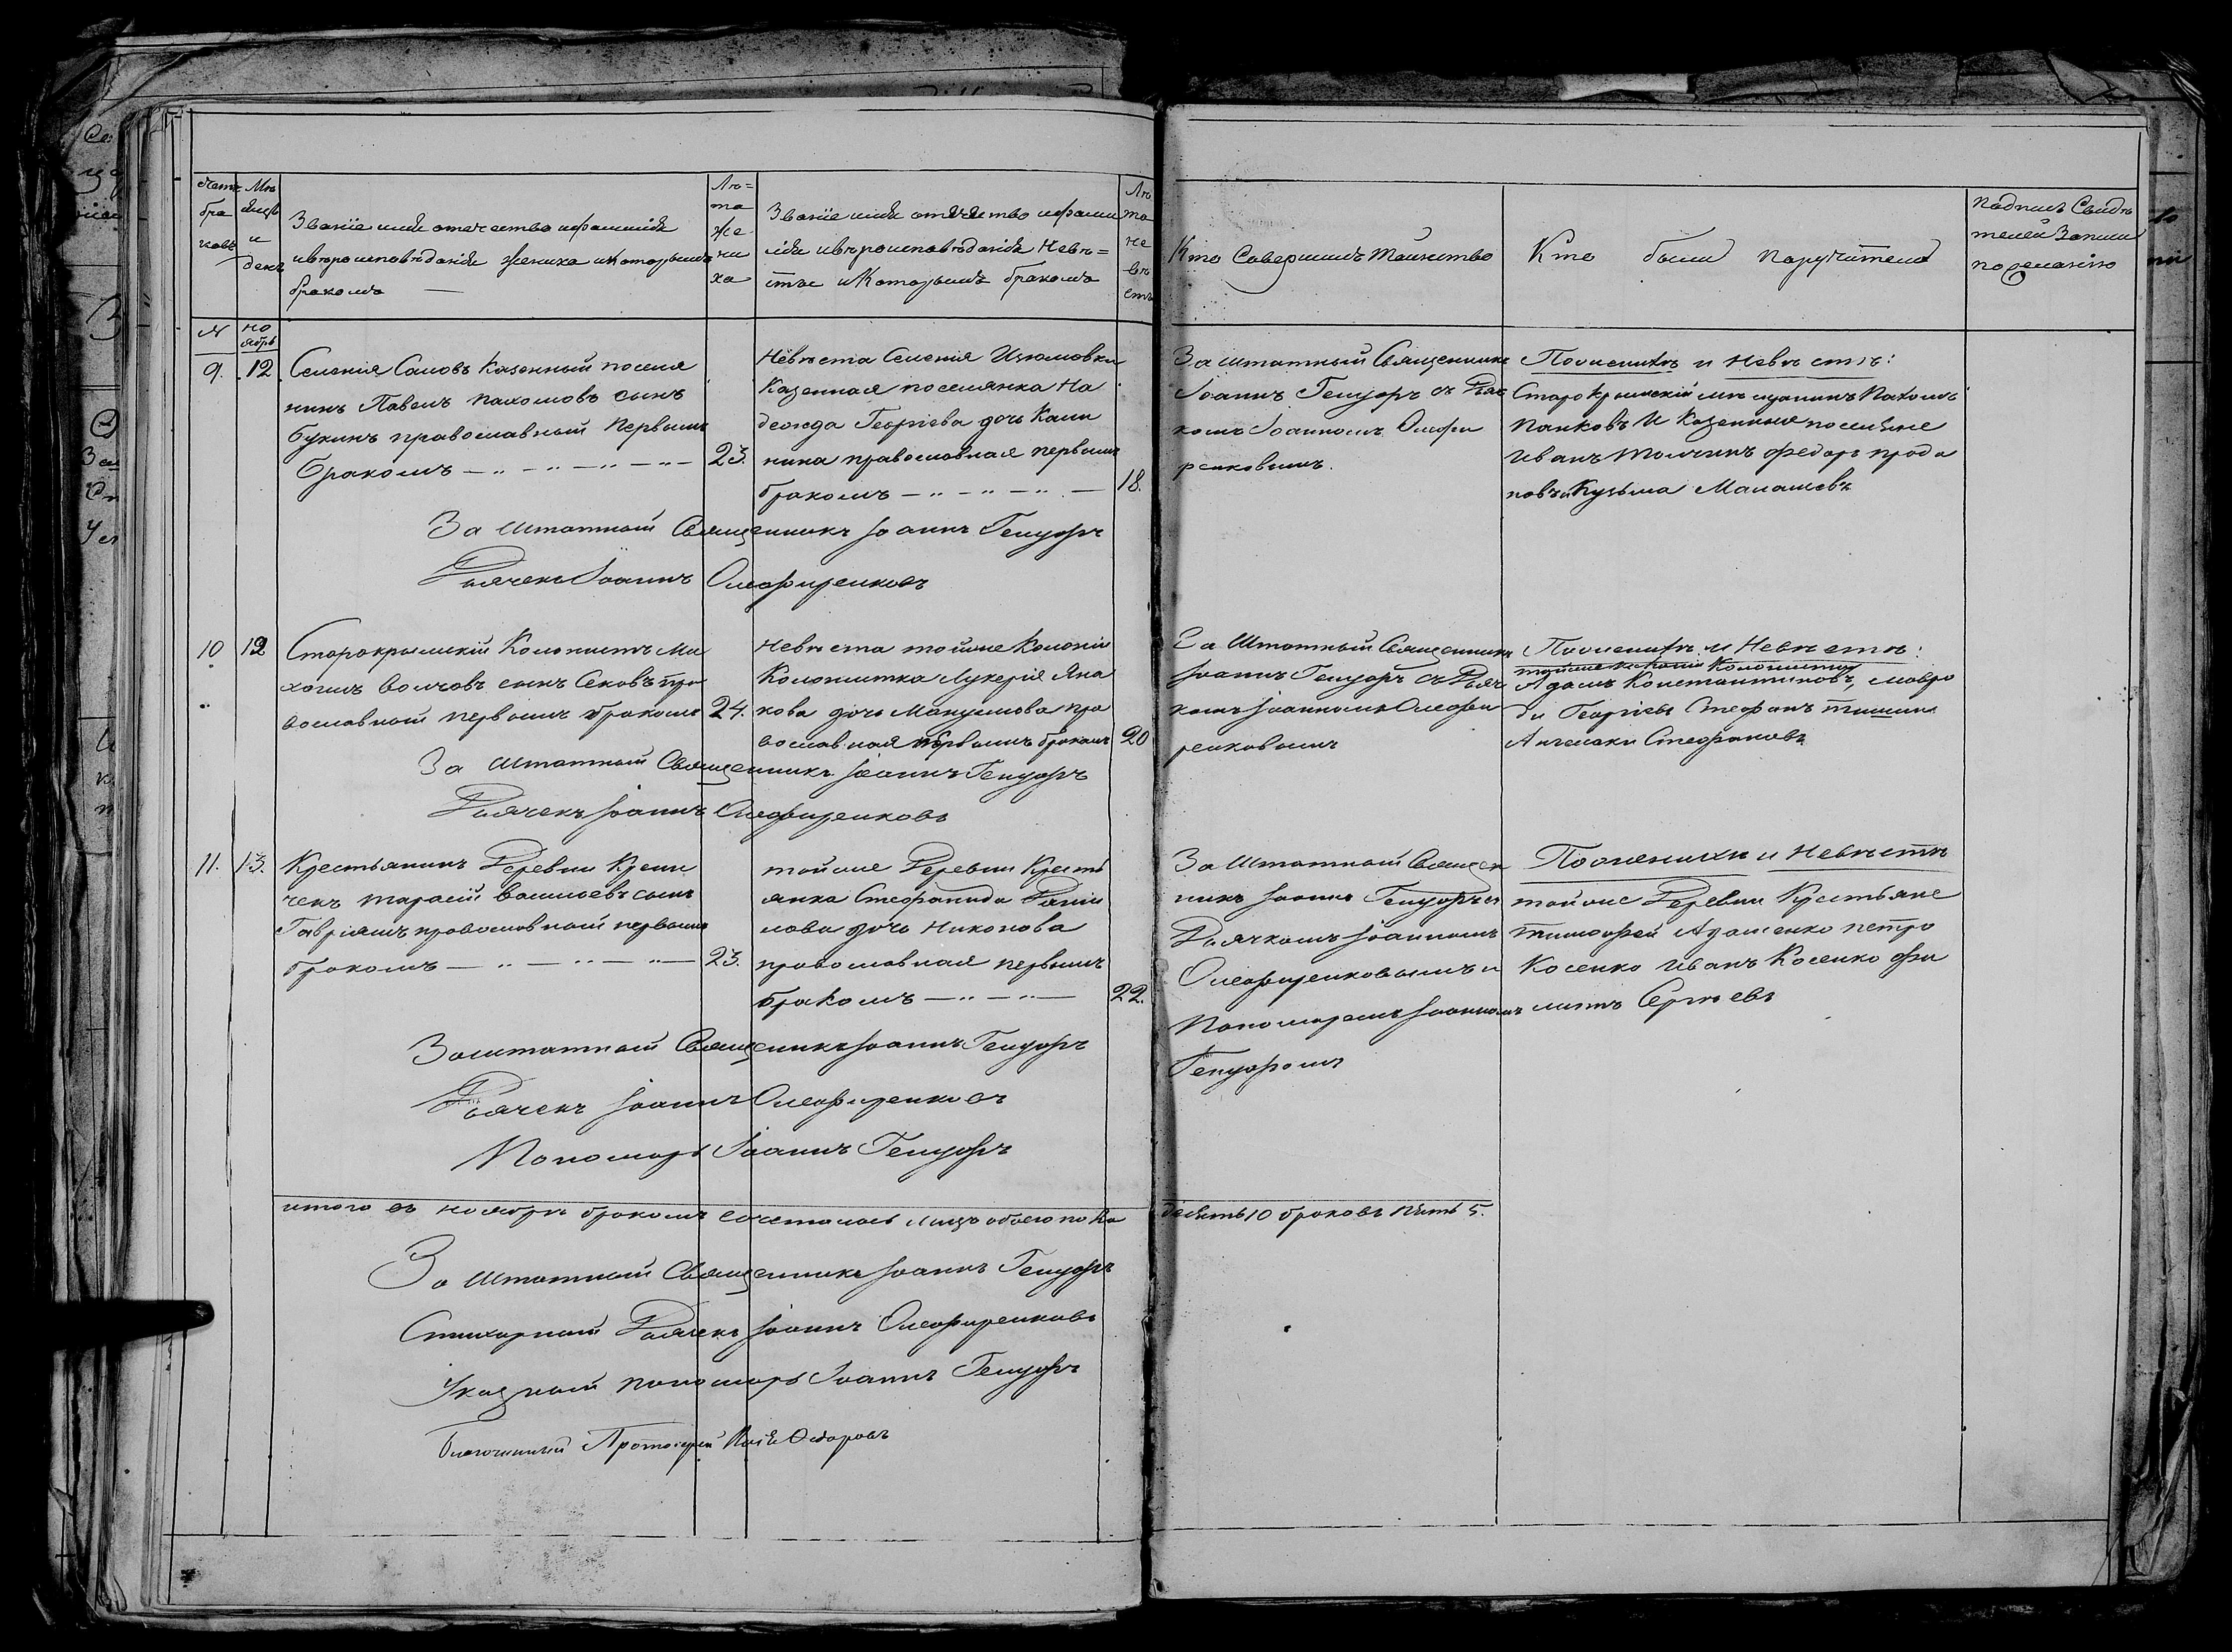 Счетъ бра ковъ
Мѣ сяцъ и день
Званіе имя отечество и фамилія
и вѣроисповѣданія жениха и которымъ
бракомъ —
Лѣ=
та
же
ни
ха
Званіе имя отечество и фами
лія и вѣроисповѣданія Невѣ=
сты и Которымъ бракомъ
Лѣ
та
не
вѣ
сты
Кто Совершилъ Таинство
Кто были Поручители
Подпись Свидѣ
телей Записи
по желанію
№
но
ябрь
9.
12
Селенія Саловъ Казенный поселя
нинъ Павелъ Пахомовъ сынъ
Букинъ православный Первымъ
бракомъ
23.
Невѣста Селенія Изюмовки
Казенная поселянка На
дежда Георгіева дочь Кали
нина православная первымъ
бракомъ
18.
За штатный Священникъ
Іоаннъ Генцоръ съ Дьяч
комъ Іоанномъ Олефи
ренковымъ.
По женихѣ и Невѣстѣ:
Старокрымскій мѣщанинъ Пахомъ
Панковъ И Казенные поселяне
Иванъ Толчинъ Федоръ прода
новъ и Кузьма Малашевъ
За Штатный Священникъ Іоаннъ Генцоръ
Дьячекъ Іоаннъ Олефиренковъ
10
12
Старокрымскій Колонистъ Ми
хаилъ Волчовъ сынъ Сековъ пра
вославный первымъ бракомъ
24.
Невѣста тойже Колоніи
Колонистка Лукерія Яна
кова дочь Манушова пра
вославная первымъ бракомъ
20
За Штатный Священникъ
Іоаннъ Генцоръ съ Дьяч
комъ Іоанномъ Олефи
ренковымъ
По женихѣ и Невѣстѣ:
тойже колоніи Колонисты
Адамъ Константиновъ, мавро
ди Георгіевъ Стефанъ
Ангелаки Стефановъ
За Штатный Священникъ Іоаннъ Генцоръ
Дьячекъ Іоаннъ Олефиренковъ
11.
13.
Крестьянинъ Деревни Крини
чекъ Тарасій Васильевъ сынъ
Гавріяшъ православный первымъ
бракомъ
23.
тойже Деревни Кресть
янка Стефанида Дани
лова дочь Никонова
православная первымъ
бракомъ
22.
За Штатный Священ
никъ Іоаннъ Генцоръ съ
Дьячкомъ Іоанномъ
Олефиренковымъ и
Пономаремъ Іоанномъ
Генцоромъ
По женихѣ и Невѣстѣ
тойже Деревни Крестьяне
Тимофей Адаменко петро
Косенко Иванъ Косенко фи
липъ Сергѣевъ
Заштатный Священникъ Іоаннъ Генцоръ
Дьячекъ Іоаннъ Олефиренковъ
Пономарь Іоаннъ Генцоръ
итого въ ноябрѣ бракомъ сочеталось лицъ обоего пола десять 10 браковъ пять 5.
За Штатный Священникъ Іоаннъ Генцоръ
Стихарный Дьячекъ Іоаннъ Олефиренковъ
Указный пономарь Іоаннъ Генцоръ
Благочинный Протоіерей Ѳедоровъ